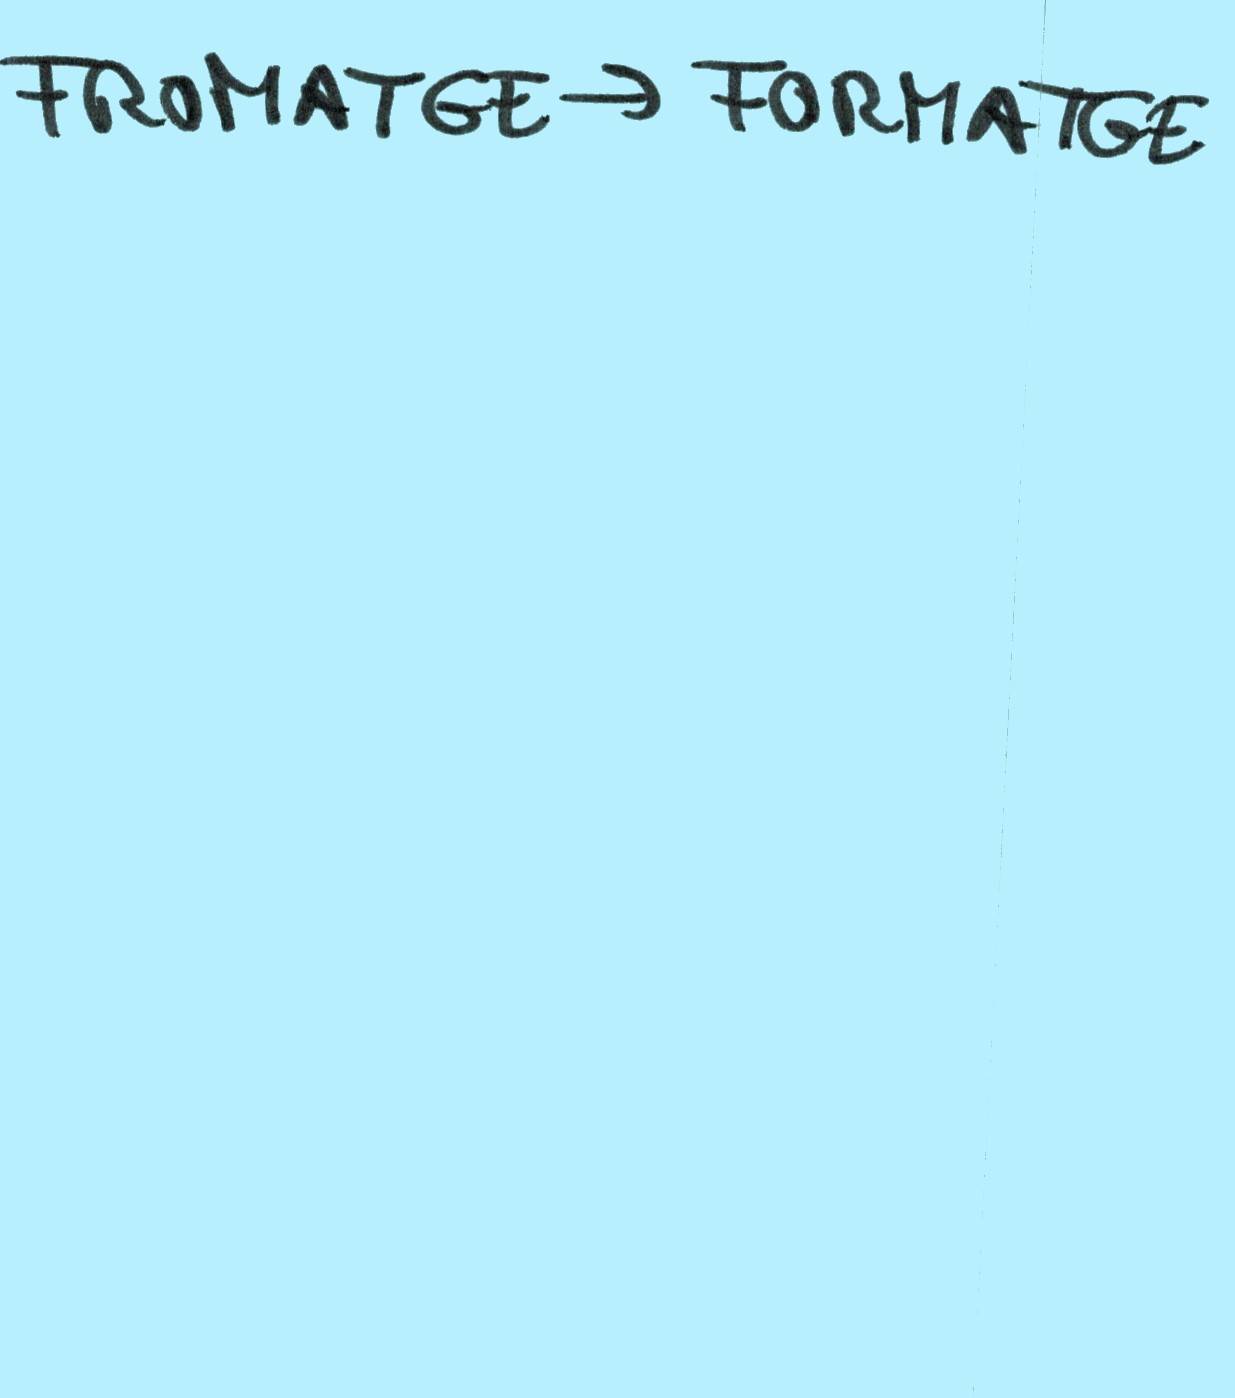 FROMATGE → FORMATGE